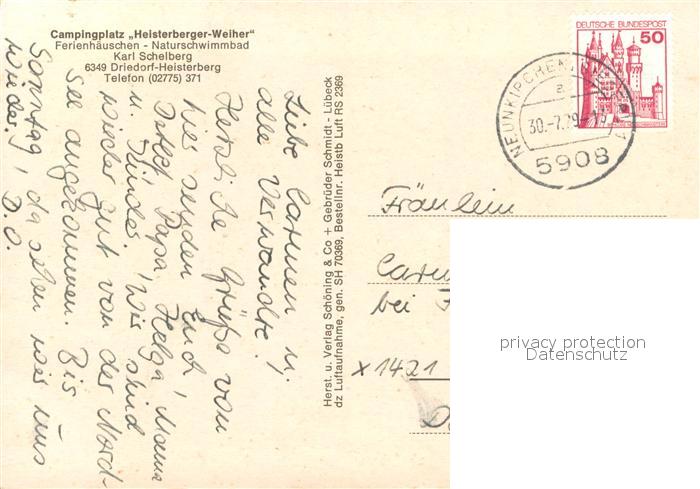 Campingplatz „Heisterberger-Weiher"
Ferienhäuschen - Naturschwimmbad
Karl Schelberg
6349 Driedorf-Heisterberg
Telefon (02775) 371
Liebe Carmen u.
alle Verwandte!
Herzliche Grüße von
hier senden Euch
Papa, Helga, Mama
u. Kinder. Wir sind
wieder gut von der Nord-
see angekommen. Bis
Sonntag, da sehen wir uns
wieder!
Herst. u. Verlag Schöning & Co + Gebrüder Schmidt - Lübeck
dz Luftaufnahme, gen. SH 70369, Bestellnr. Heistb Luft RS 2369
DEUTSCHE BUNDESPOST
50
NEUNKIRCHEN
a
30.-7.79
5908
Fräulein
bei
x 1421
privacy protection
Datenschutz